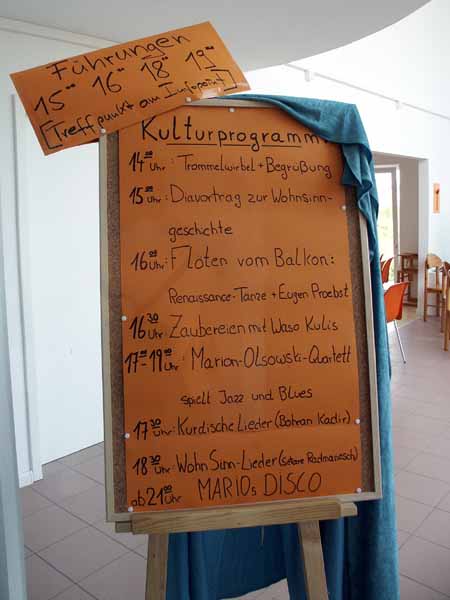 Führungen
15⁰⁰ 16⁰⁰ 18⁰⁰ 19⁰⁰
[Treffpunkt am Infopoint]
Kulturprogramm
14⁰⁰ Uhr: Trommelwirbel + Begrüßung
15⁰⁰ Uhr: Diavortrag zur Wohnsinn-
geschichte
16⁰⁰ Uhr: Flöten vom Balkon:
Renaissance-Tänze + Eugen Proebst
16³⁰ Uhr: Zaubereien mit Waso Kulis
17⁰⁰-19⁰⁰ Uhr: Marion-Olsowski-Quartett
spielt Jazz und Blues
17³⁰ Uhr: Kurdische Lieder (Bohran Kadir)
18³⁰ Uhr: WohnSinn-Lieder (Setare Radmanesch)
ab 21⁰⁰ Uhr MARIOs DISCO